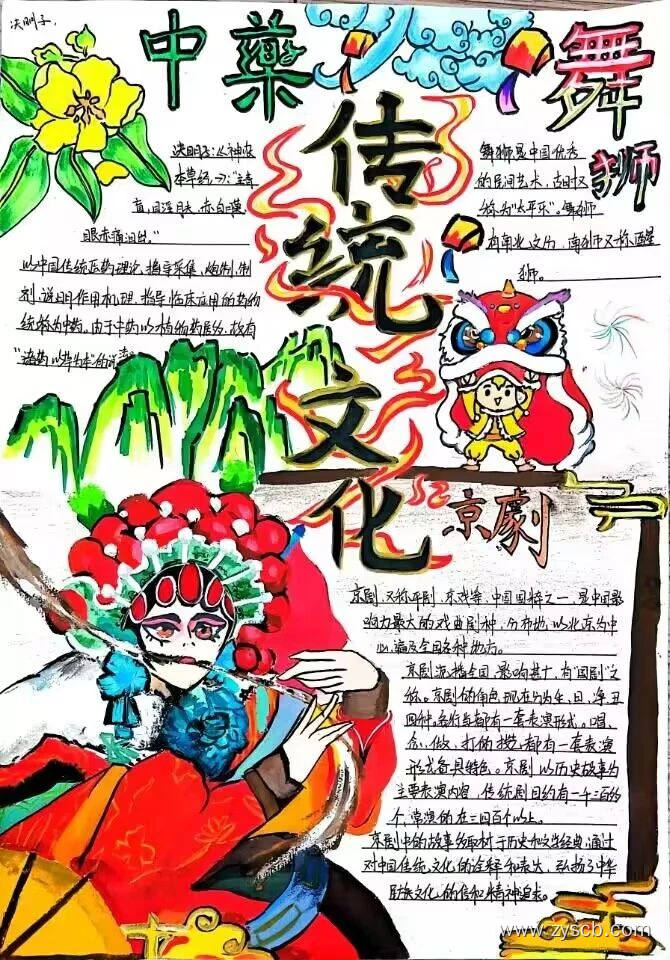 决明子
中藥
舞
狮
传统
文化
决明子:《神农
本草经》:"主青
盲,目淫肤,赤白膜,
眼赤痛泪出。"
以中国传统医药理论指导采集、炮制、制
剂,说明作用机理,指导临床应用的药物
统称为中药。由于中药以植物药居多,故有
"诸药以草为本"的说法
舞狮是中国优秀
的民间艺术,古时又
称为"太平乐"。舞狮
有南北之分,南狮又称醒
狮。
京劇
京剧,又称平剧,京戏等,中国国粹之一,是中国影
响力最大的戏曲剧种,分布地以北京为中
心,遍及全国各种地方。
京剧流播全国,影响甚广,有"国剧"之
称。京剧的角色现在分为生、旦、净、丑
四种。各行当都有一套表演形式。唱
念、做、打的 都有一套表演
形式各具特色。京剧以历史故事为
主要表演内容,传统剧目约有一千三百多
个,常演的在三四百个以上。
京剧中的故事多取材于历史和文学经典,通过
对中国传统文化的诠释和表达,弘扬了中华
民族文化的 和精神追求。
www.zyscb.com